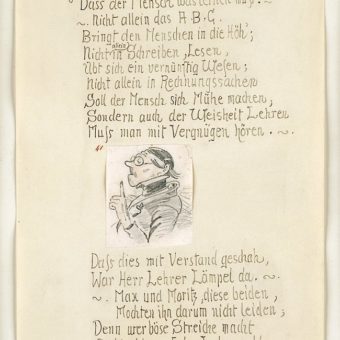 Dass der Mensch was lernen muß. ~
~. Nicht allein das A.B.C.
Bringt den Menschen in die Höh';
Nicht allein in Schreiben, Lesen,
Übt sich ein vernünftig Wesen;
Nicht allein in Rechnungssachen
Soll der Mensch sich Mühe machen,
Sondern auch der Weisheit Lehren
Muß man mit Vergnügen hören. ~.
Daß dies mit Verstand geschah,
War Herr Lehrer Lämpel da. ~.
~. Max und Moritz, diese beiden,
Mochten ihn darum nicht leiden;
Denn wer böse Streiche macht